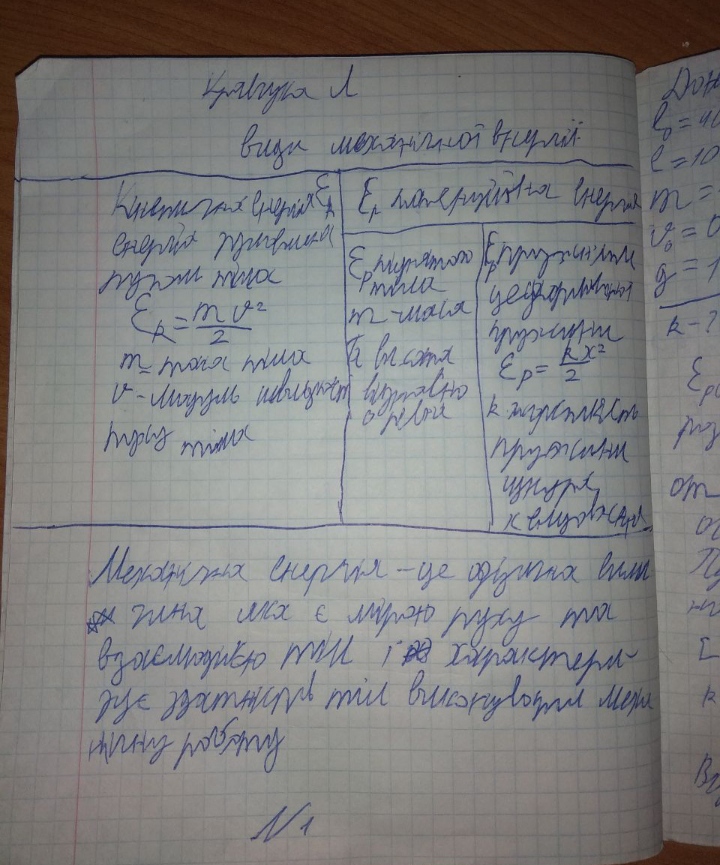 Кравчука Л
види механічної енергії
Кінетична енергія Ek
енергія зумовлена
рухом тіла
Ek = mv²/2
m = маса тіла
v - модуль швидкості
руху тіла
Ep потенційна енергія
Ep піднятого
тіла
m - маса
h висота
відновно
Ep пружини
деформованої
пружини
Ep = kx²/2
k жорсткість
пружини
шнура
x видовження
Механічна енергія – це фізична вели
чина яка є мірою руху та
взаємодією тіл і характери-
зує здатність тіл виконувати меха
нічну роботу
N1
l₀ = 
l = 10
m =
v₀ = 0
g = 1
k - ?